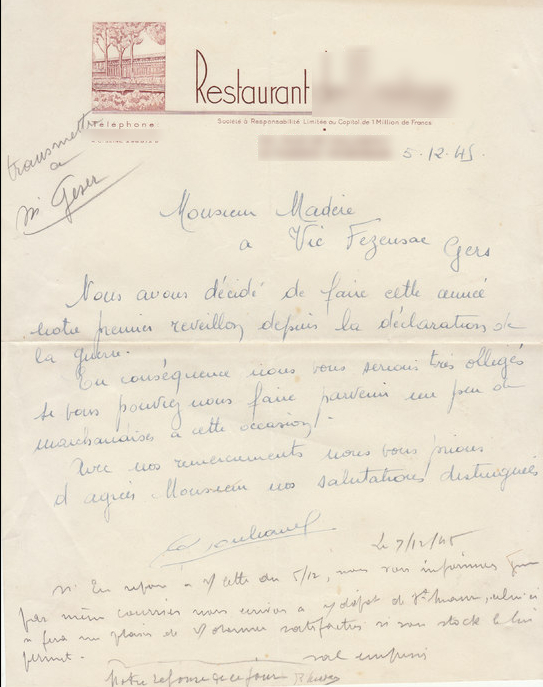 Restaurant
Téléphone
Société à Responsabilité Limitée au Capital de 1 Million de Francs
5.12.45.
transmettre
a
Mr Geser
Monsieur Madère
a Vic Fezensac
Gers
Nous avons décidé de faire cette année
notre premier reveillon, depuis la déclaration de
la guerre.
En conséquence nous vous serions très obligés
si vous pouviez nous faire parvenir un peu de
marchandises a cette occasion.
Avec nos remerciements nous vous prions
d'agréer Monsieur nos salutations distinguées
Le 7/12/45
En repon a V/ lettre du 5/12, nous vous informons que
par même courrier nous envoi a V/ dépot de St Maur, celui ci
se fera un plaisir de V/ donner satisfaction si son stock le lui
permet.
Notre reponse de ce jour